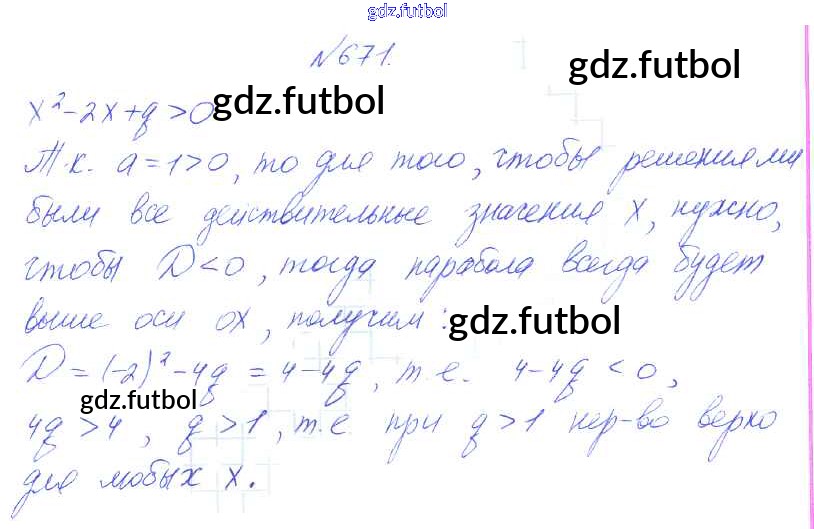 gdz.futbol
№671.
gdz.futbol
x²-2x+q>0 gdz.futbol
Т.к. a=1>0, то для того, чтобы решениями
были все действительные значения x, нужно,
чтобы D<0, тогда парабола всегда будет
выше оси ox, получим: gdz.futbol
D=(-2)²-4q=4-4q, т.е. 4-4q<0,
gdz.futbol
4q>4, q>1, т.е. при q>1 нер-во верно
для любых x.